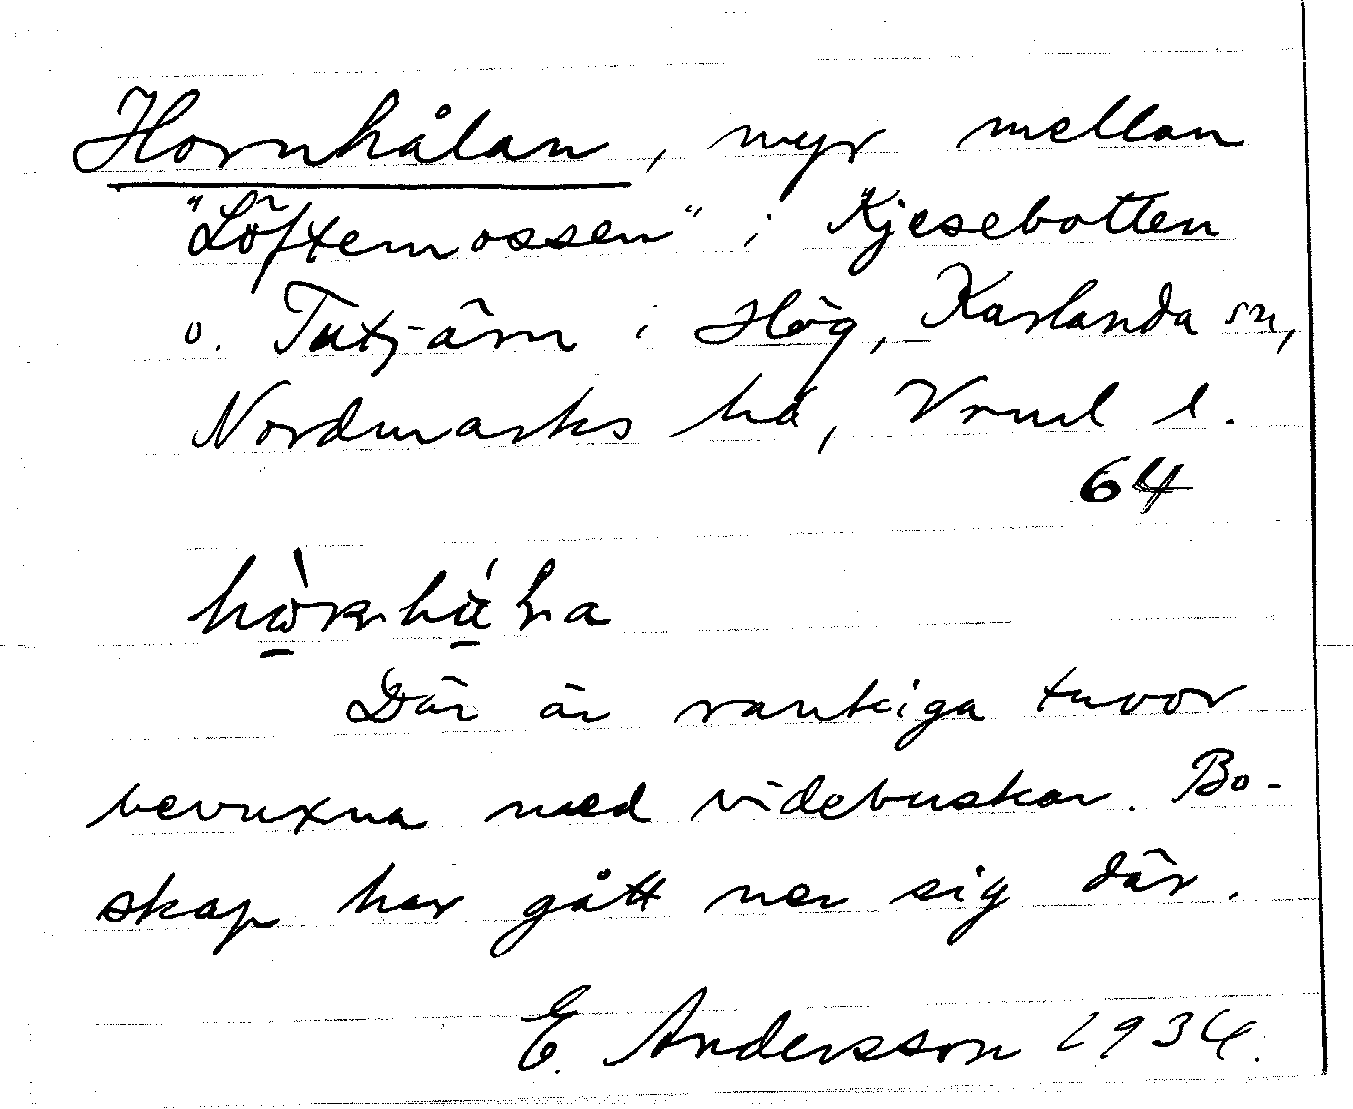 Hornhålan, myr mellan
"Löftemossen" i Kjesebotten
o. Tutjärn i Hög, Karlanda sn,
Nordmarks hd, Vrml l.
64
Där är rankiga tuvor
bevuxna med videbuskar. Bo-
skap har gått ner sig där.
E. Andersson 1934.